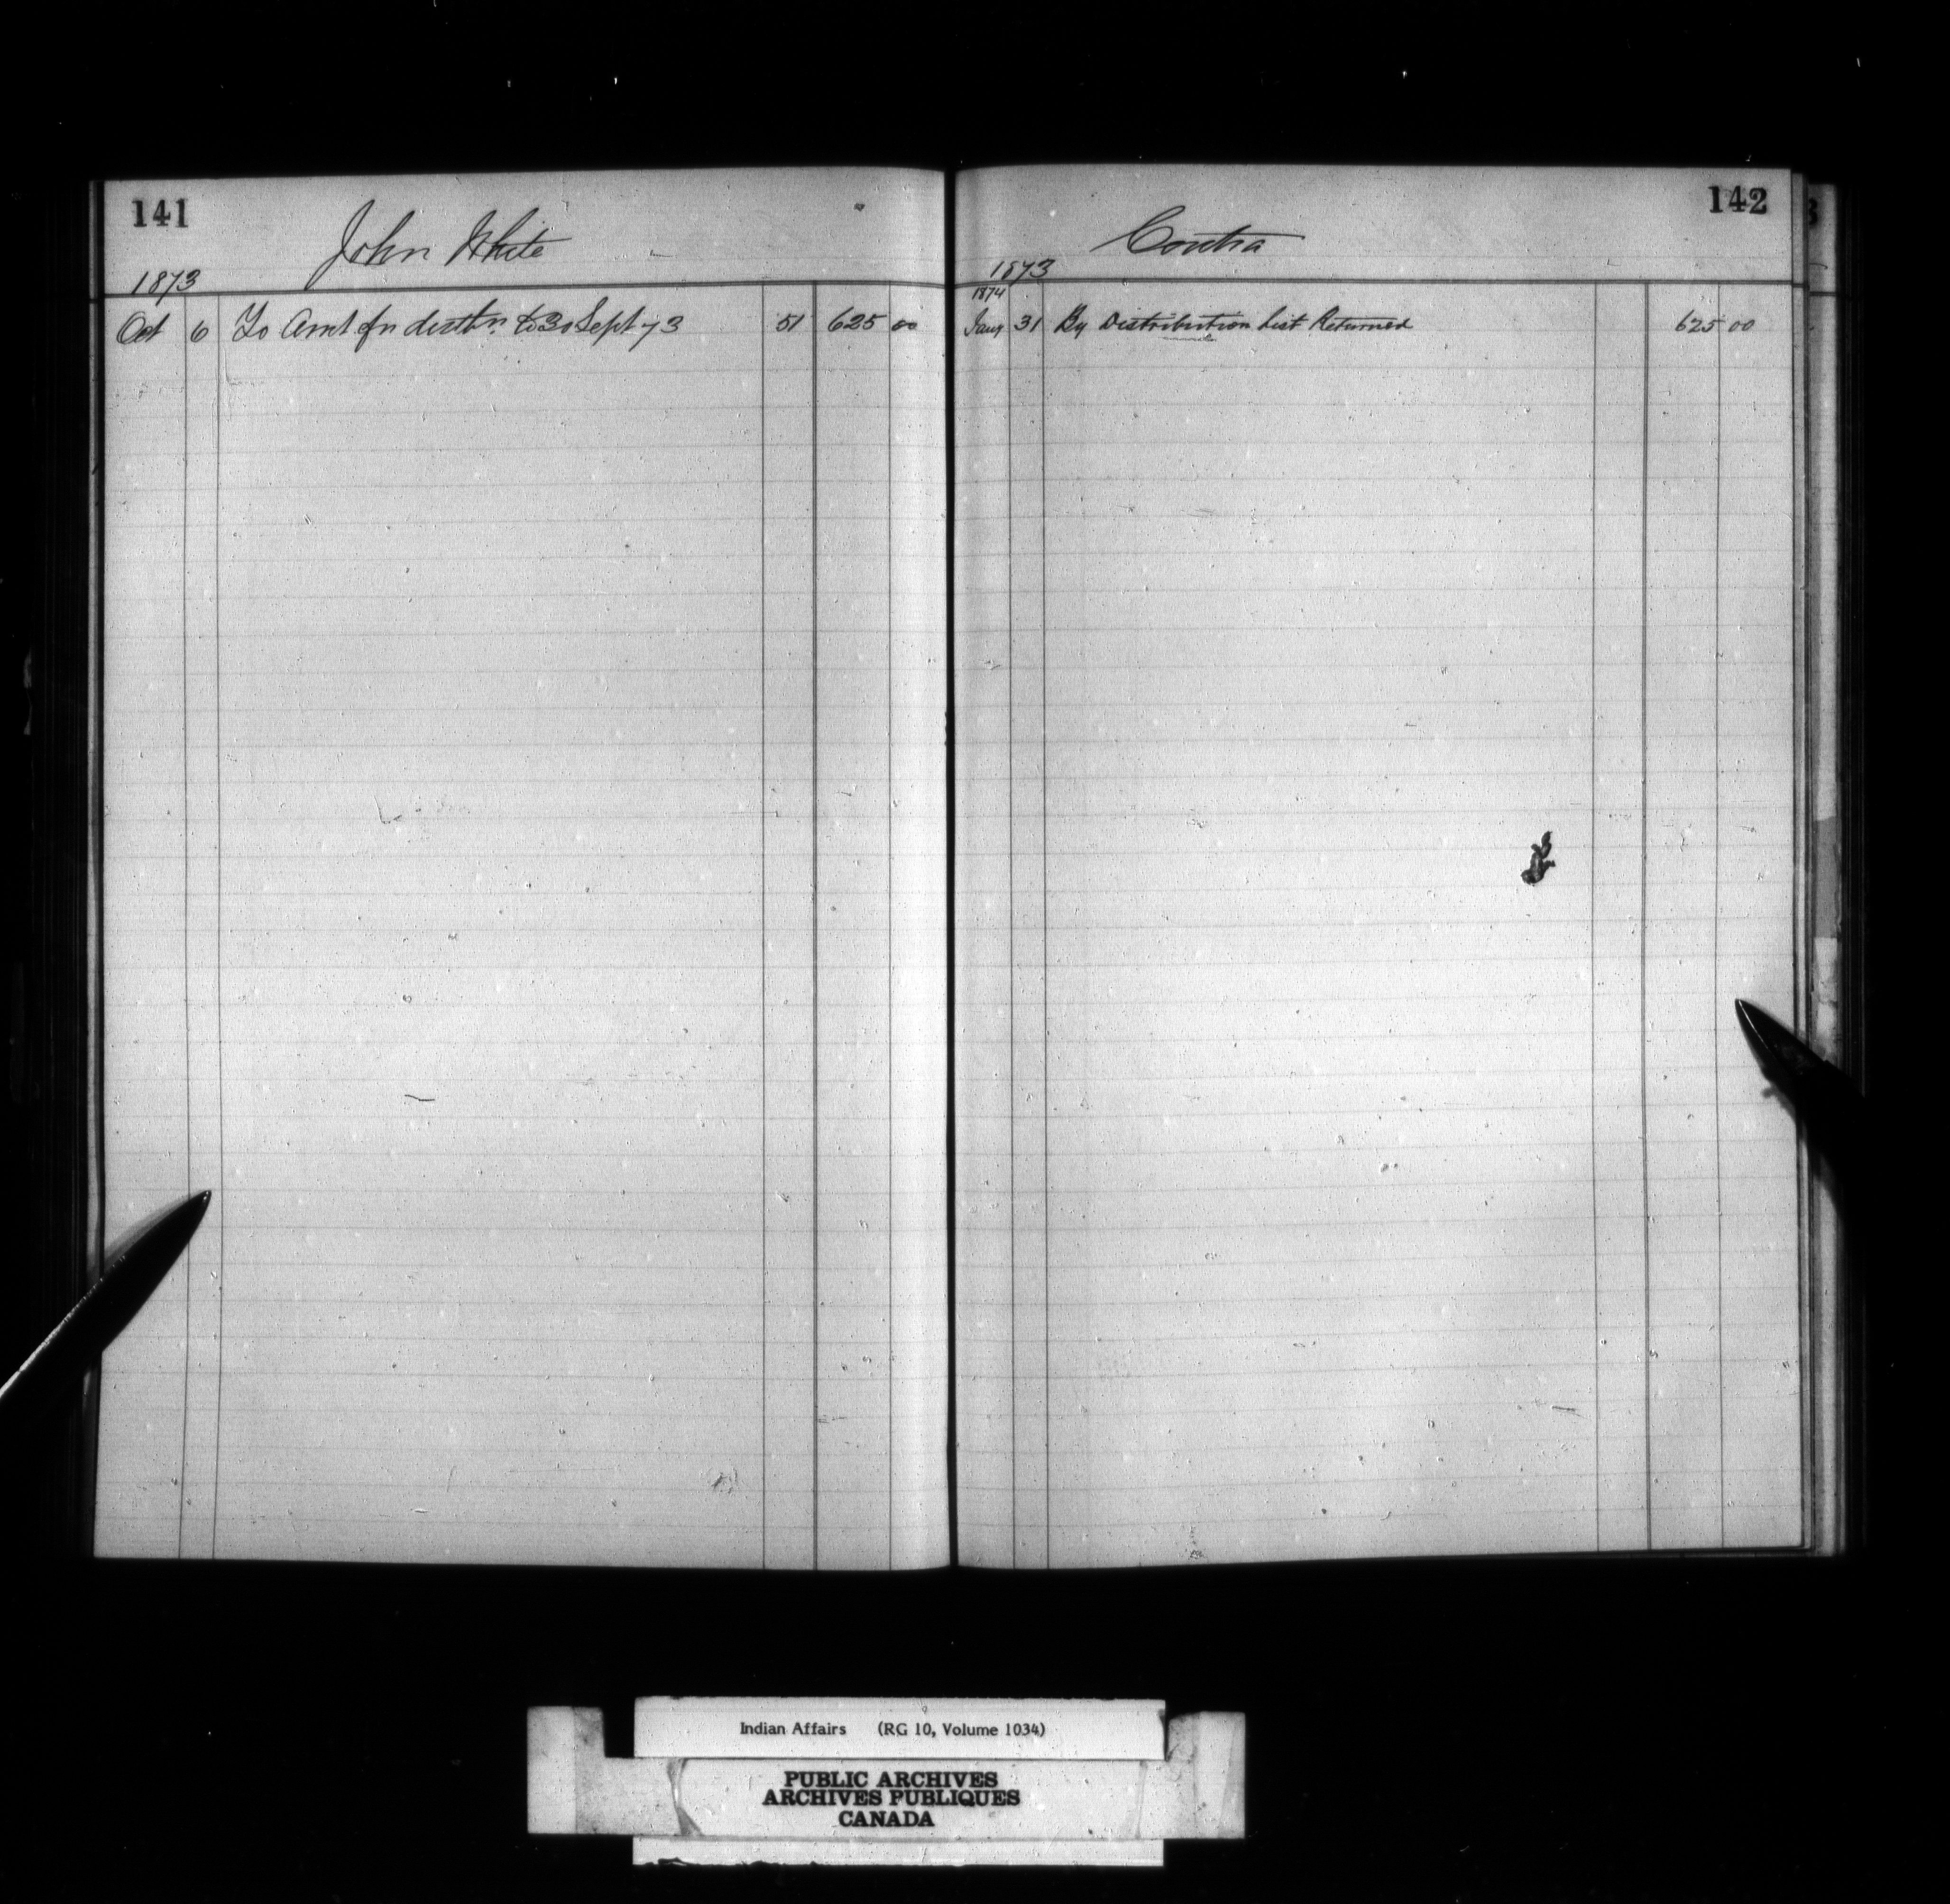 141
John White
1873
Oct 6 To Amt for distbn. to 30 Sept 73 51 625 00
142
Contra
1873
1874
Jany 31 By Distribution List Returned 625 00
Indian Affairs (RG 10, Volume 1034)
PUBLIC ARCHIVES
ARCHIVES PUBLIQUES
CANADA